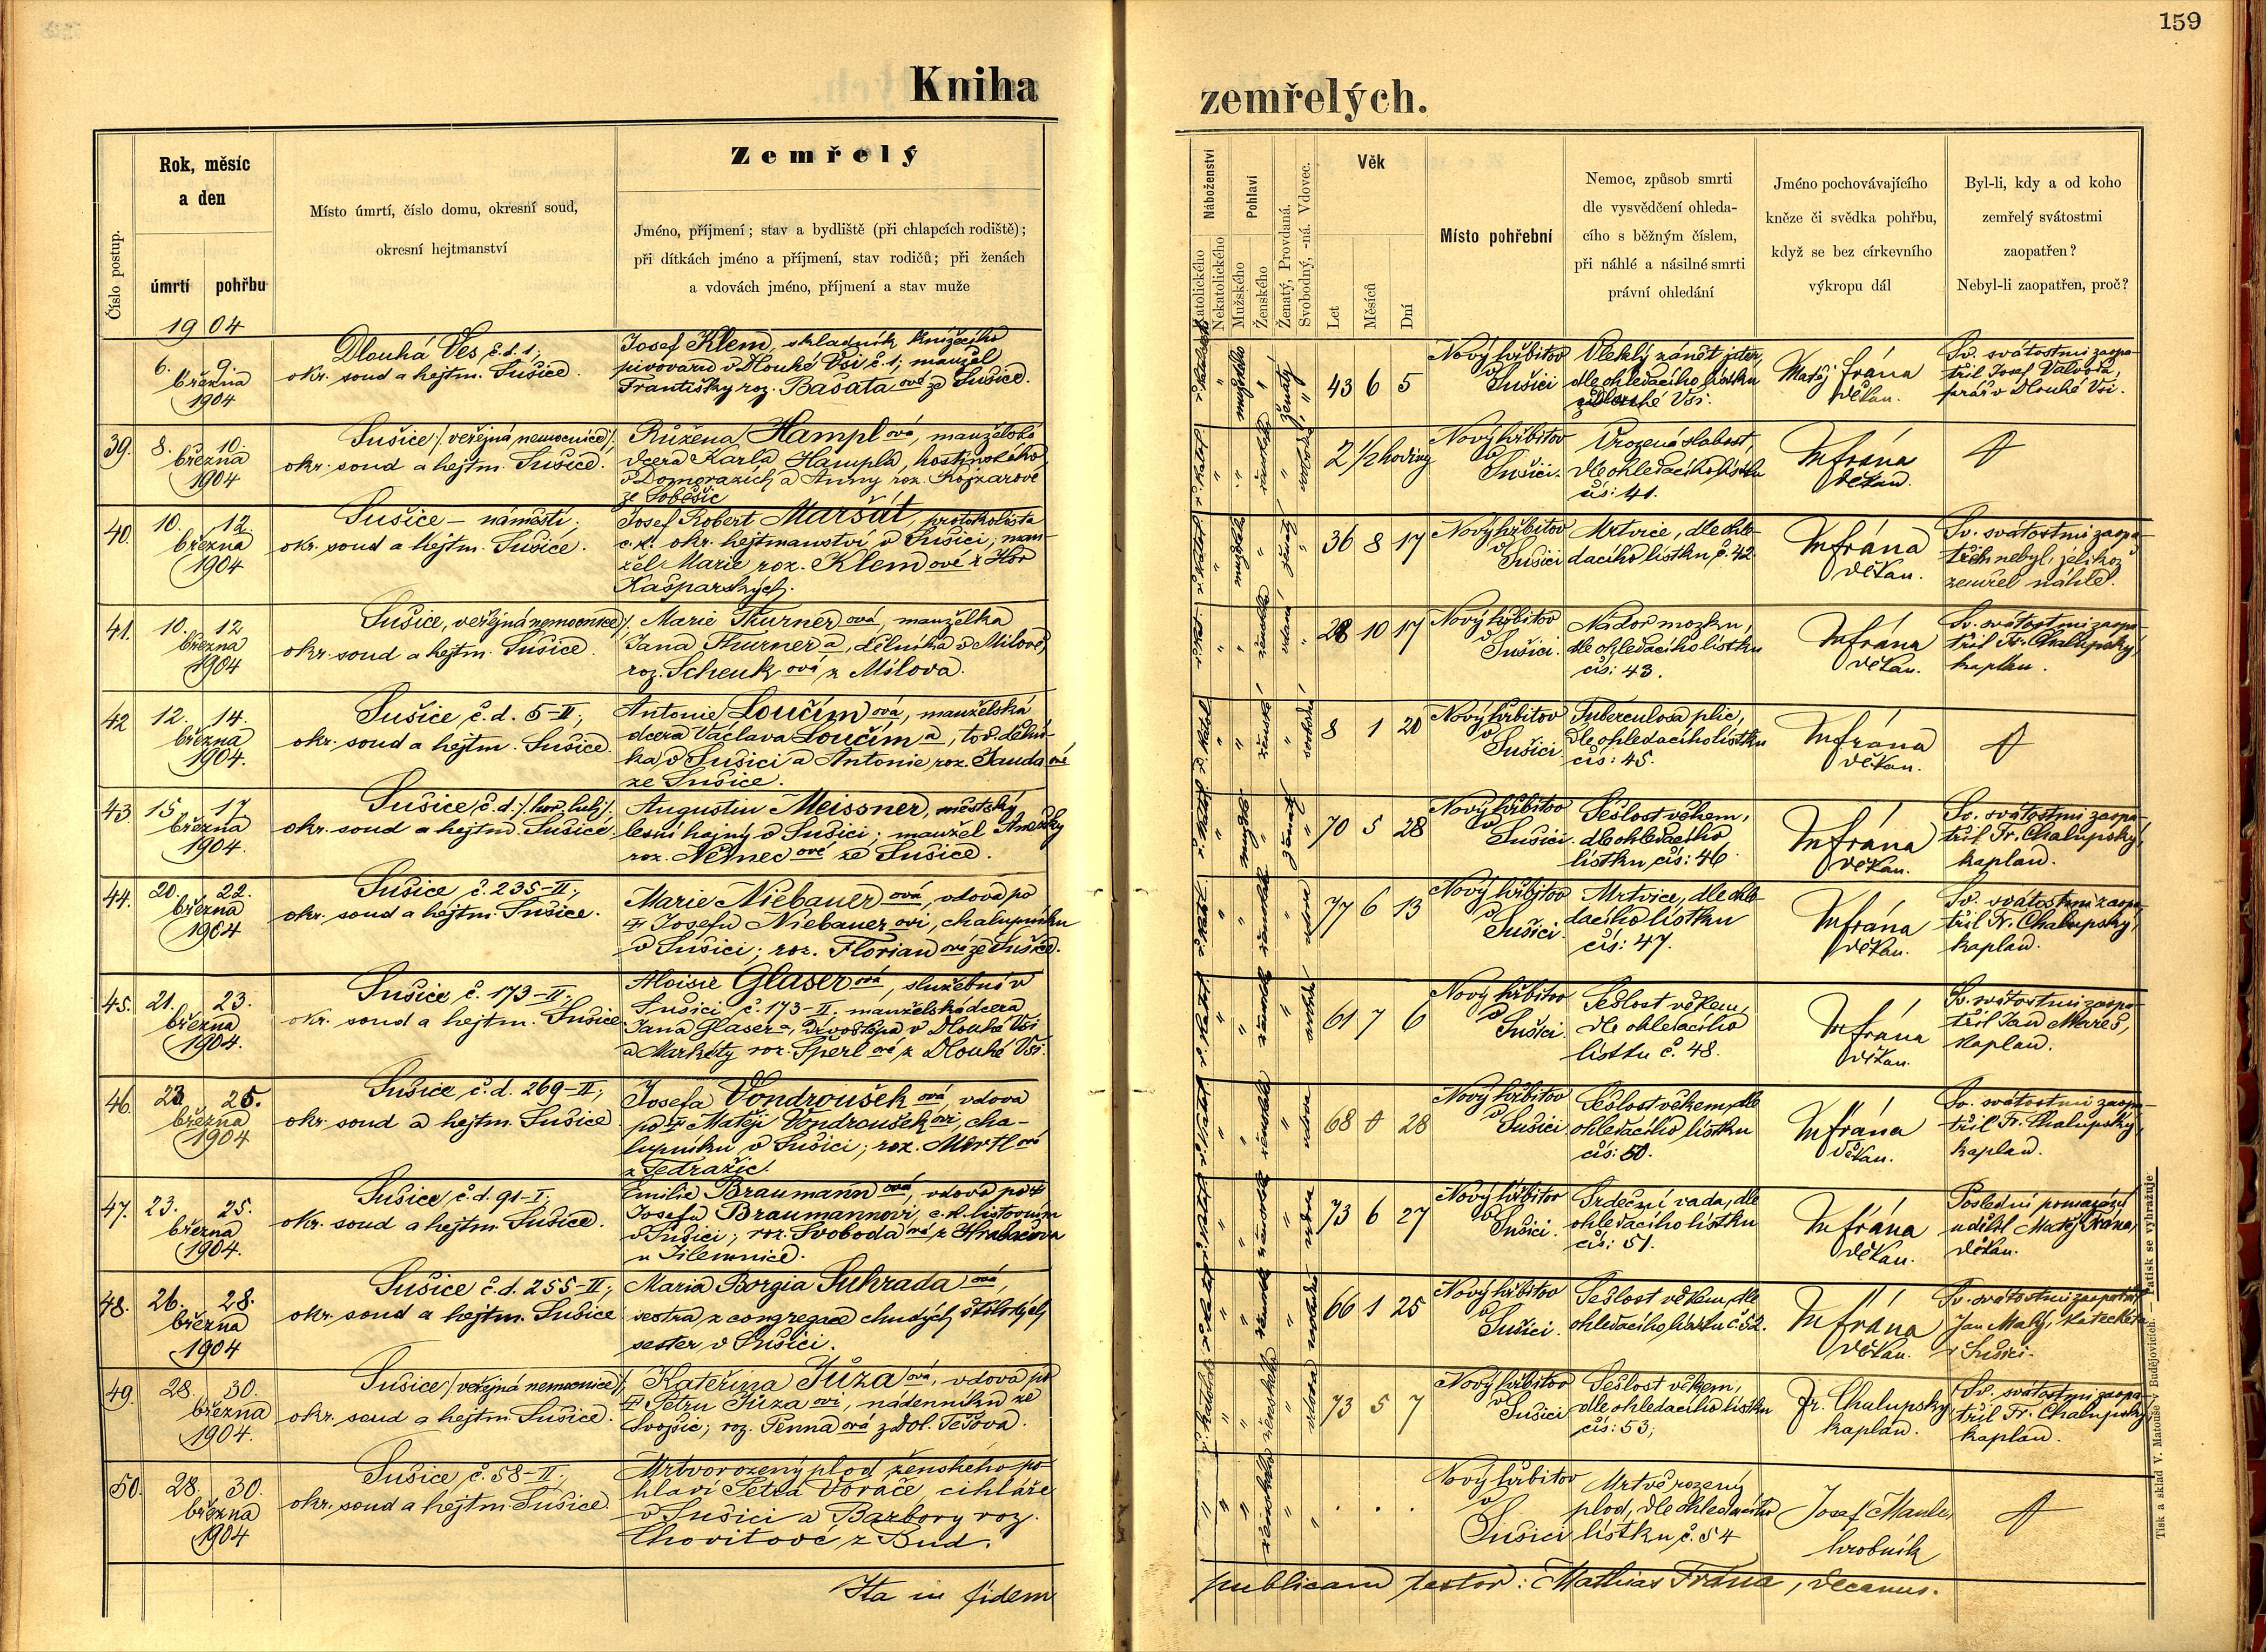 159
Kniha zemřelých.
Číslo postup.
Rok, měsíc
a den
úmrtí pohřbu
Místo úmrtí, číslo domu, okresní soud,
okresní hejtmanství
Zemřelý
Jméno, příjmení; stav a bydliště (při chlapcích rodiště);
při dítkách jméno a příjmení, stav rodičů; při ženách
a vdovách jméno, příjmení a stav muže
Náboženství
Katolického
Nekatolického
Pohlaví
Mužského
Ženského
Ženatý, Provdaná.
Svobodný, -ná. Vdovec.
Věk
Let
Měsíců
Dní
Místo pohřební
Nemoc, způsob smrti
dle vysvědčení ohleda-
cího s běžným číslem,
při náhlé a násilné smrti
právní ohledání
Jméno pochovávajícího
kněze či svědka pohřbu,
když se bez církevního
výkropu dál
Byl-li, kdy a od koho
zemřelý svátostmi
zaopatřen?
Nebyl-li zaopatřen, proč?
1904
6. 9.
března
1904
Dlouhá Ves č.d. 1,
okr. soud a hejtm. Sušice.
Josef Klem, skladník knížecího
pivovaru v Dlouhé Vsi č. 1, manžel
Františky roz. Basatové ze Sušice.
43 6 5
Nový hřbitov
v
Sušici
Vleklý zánět jater,
dle ohledacího lístku
Vsi.
Matěj Frána
děkan.
Sv. svátostmi zaopa-
třil Josef Valvoda,
farář v Dlouhé Vsi.
39. 8. 10.
března
1904
Sušice /veřejná nemocnice/,
okr. soud a hejtm. Sušice.
Růžena Hamplová, manželská
dcera Karla Hampla, hostinského
v Domoražích a Anny roz.
ze Soběšic
2 1/2 hodiny
Nový hřbitov
v
Sušici.
Vrozená slabost,
dle ohledacího lístku
čís: 41.
M Frána
děkan.
40. 10. 12.
března
1904
Sušice – náměstí;
okr. soud a hejtm. Sušice.
Josef Robert Maršát, protokolista
c.k. okr. hejtmanství v Sušici, man-
žel Marie roz. Klemové z Hor
Kašparských.
36 8 17
Nový hřbitov
v
Sušici
Mrtvice, dle ohle-
dacího lístku č. 42
M Frána
děkan.
Sv. svátostmi zaopa-
třen nebyl, jelikož
zemřel náhle.
41. 10. 12
března
1904
Sušice, veřejná nemocnice/,
okr. soud a hejtm. Sušice.
Marie Thurnerová, manželka
Jana Thurnera, dělníka v Milově,
roz. Schenková z Milova.
28 10 17
Nový hřbitov
v
Sušici.
Nádor mozku,
dle ohledacího lístku
čís: 43.
M Frána
děkan.
Sv. svátostmi zaopa-
třil Fr. Chalupský,
kaplan.
42 12. 14.
března
1904.
Sušice, č.d. 5-II;
okr. soud a hejtm. Sušice.
Antonie Loučímová, manželská
dcera Václava Loučíma, tov. dělní-
ka v Sušici a Antonie, roz. Jandové
ze Sušice.
8 1 20
Nový hřbitov
v
Sušici.
Tuberculosa plic,
dle ohledacího lístku
čís: 45.
M Frána
děkan.
43. 15. 17.
března
1904.
Sušice, č.d.
okr. soud a hejtm. Sušice,
Augustin Meissner, městský
lesní hajný v Sušici; manžel Anežky
roz. Němecové ze Sušice.
70 5 28
Nový hřbitov
v
Sušici.
Sešlost věkem,
dle ohledacího
lístku čís: 46.
M Frána
děkan.
Sv. svátostmi zaopa-
třil Fr. Chalupský,
kaplan.
44. 20. 22.
března
1904
Sušice č. 235-II;
okr. soud a hejtm. Sušice.
Marie Niebauerová, vdova po
† Josefu Niebauerovi, chalupníku
v Sušici; roz. Florianová ze Sušice.
77 6 13
Nový hřbitov
v
Sušici.
Mrtvice, dle ohle-
dacího lístku
čís: 47.
M Frána
děkan.
Sv. svátostmi zaopa-
třil Fr. Chalupský,
kaplan.
45. 21. 23.
března
1904.
Sušice č. 173-II;
okr. soud a hejtm. Sušice
Aloisie Glaserová, služebná v
Sušici č. 173-II. manželská dcera
Jana Glasera, dřvoštěpa v Dlouhé Vsi
a Markéty roz. Šperlové z Dlouhé Vsi.
61 7 6
Nový hřbitov
v
Sušici.
Sešlost věkem,
dle ohledacího
lístku č. 48.
M Frána
děkan.
Sv. svátostmi zaopa-
třil Jan Mareš,
kaplan.
46. 23 25.
března
1904
Sušice, č.d. 269-II;
okr. soud a hejtm. Sušice
Josefa Vondroušková, vdova
po † Matěji Vondrouškovi, cha-
lupníku v Sušici; roz. Mertlová
z Tedražic.
68 28
Nový hřbitov
v
Sušici
Sešlost věkem, dle
ohledacího lístku
čís: 50.
M Frána
děkan.
Sv. svátostmi zaopa-
třil Fr. Chalupský,
kaplan.
47. 23. 25.
března
1904.
Sušice, č.d. 91-I;
okr. soud a hejtm. Sušice.
Emilie Braumannová, vdova po †
Josefu Braumannovi, c.k. listonoši
v Sušici; roz. Svobodová z Hrabačova
u Jilemnice.
73 6 27
Nový hřbitov
v
Sušici.
Srdeční vada, dle
ohledacího lístku
čís: 51.
M Frána
děkan.
Poslední pomazání
udělil Matěj Frána,
děkan.
48. 26. 28.
března
1904
Sušice č.d. 255-II;
okr. soud a hejtm. Sušice
Maria Borgia Suhradaová,
sestra z congregace chudých školských
sester v Sušici.
66 1 25
Nový hřbitov
v
Sušici.
Sešlost věkem, dle
ohledacího lístku č. 52.
M Frána
děkan.
Sv. svátostmi zaopatřil
Jan Malý, katecheta
v Sušici.
49. 28. 30.
března
1904.
Sušice /veřejná nemocnice/,
okr. soud a hejtm. Sušice.
Kateřina Jůzaová, vdova po
† Petru Jůzaovi, nádenníku ze
Svojšic; roz. Pennaová z Dol. Těšova.
73 5 7
Nový hřbitov
v
Sušici
Sešlost věkem,
dle ohledacího lístku
čís: 53;
Fr. Chalupský,
kaplan.
Sv. svátostmi zaopa-
třil Fr. Chalupský,
kaplan.
50. 28. 30.
března
1904
Sušice, č. 58-II;
okr. soud a hejtm. Sušice.
Mrtvorozený plod ženského po-
hlaví Petra Voráče, cihláře
v Sušici a Barbory roz.
Chovitové z Bud.
Nový hřbitov
v
Sušici
Mrtvě rozený
plod, dle ohledacího
lístku č. 54
Josef
hrobník
Ita in fidem publicam testor: Mathias Frána, decanus.
Tisk a sklad V. Matouše v Budějovicích. — Patisk se vyhražuje